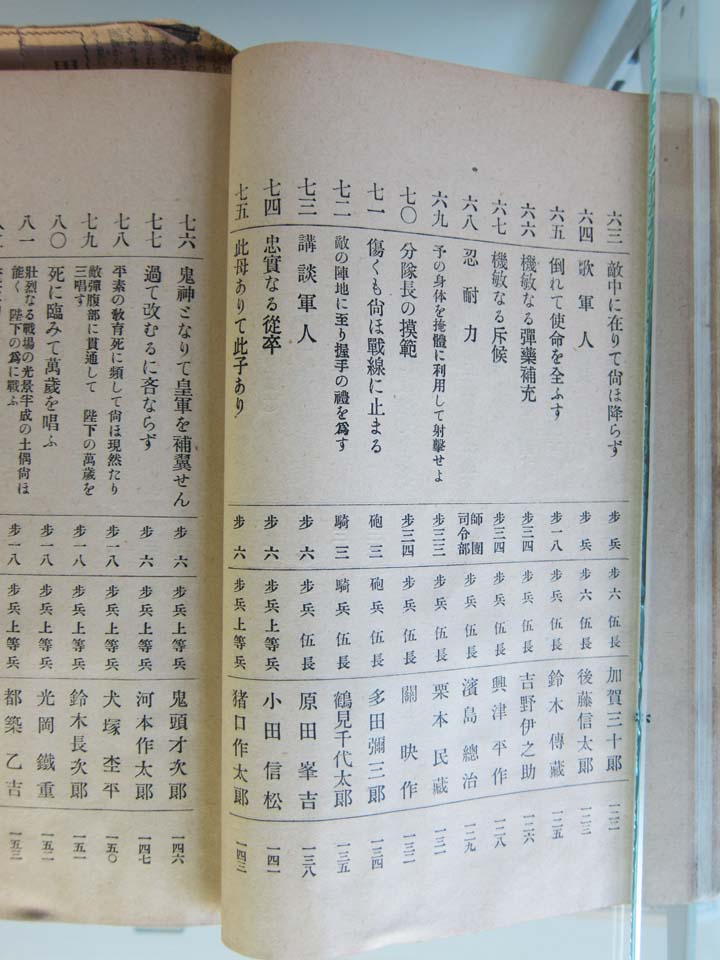 六三 敵中に在りて尙ほ降らず 步兵 步六 伍長 加賀三十郞 一二一
六四 歌軍人 步兵 步六 伍長 後藤信太郞 一二三
六五 倒れて使命を全ふす 步一八 步兵伍長 鈴木傳藏 一二五
六六 機敏なる彈藥補充 步三四 步兵伍長 吉野伊之助 一二六
六七 機敏なる斥候 步三四 步兵伍長 興津平作 一二八
六八 忍耐力 師團司令部 步兵伍長 濱島總治 一二九
六九 予の身体を掩體に利用して射擊せよ 步三三 步兵伍長 栗本民藏 一三一
七〇 分隊長の摸範 步三四 步兵伍長 關映作 一三二
七一 傷くも尙ほ戰線に止まる 砲三 砲兵伍長 多田彌三郞 一三四
七二 敵の陣地に至り握手の禮を爲す 騎三 騎兵伍長 鶴見千代太郞 一三五
七三 講談軍人 步六 步兵伍長 原田峯吉 一三八
七四 忠實なる從卒 步六 步兵上等兵 小田信松 一四一
七五 此母ありて此子あり 步六 步兵上等兵 猪口作太郞 一四三
七六 鬼神となりて皇軍を補翼せん 步六 步兵上等兵 鬼頭才次郞 一四六
七七 過て改むるに吝ならず 步六 步兵上等兵 河本作太郞 一四七
七八 平素の敎育死に頻して尙ほ現然たり 步一八 步兵上等兵 犬塚杢平 一五〇
七九 敵彈腹部に貫通して 陛下の萬歲を
三唱す 步一八 步兵上等兵 鈴木長次郞 一五一
八〇 死に臨みて萬歲を唱ふ 步一八 步兵上等兵 光岡鐵重 一五二
八一 壯烈なる戰場の光景半成の土偶尙ほ
能く 陛下の爲に戰ふ 步一八 步兵上等兵 都築乙吉 一五三